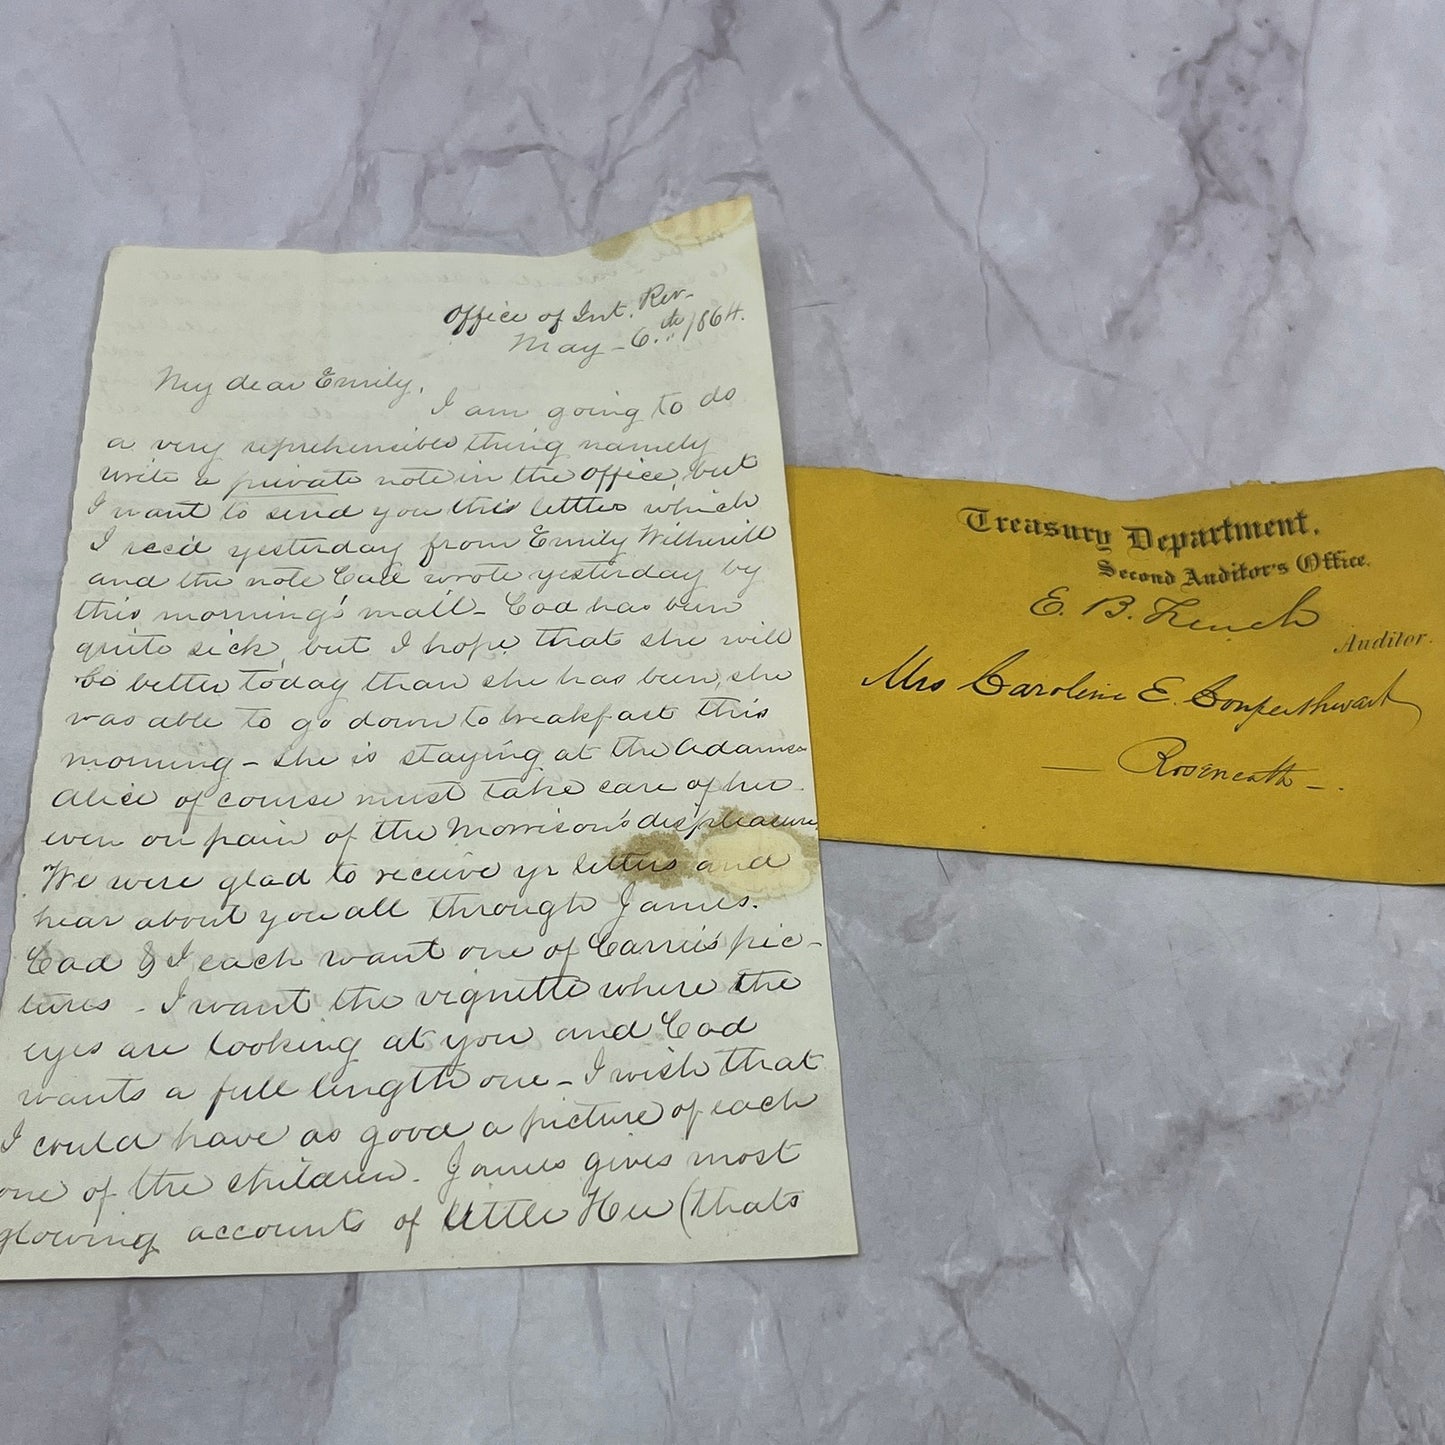 Office of Int. Rev-
May - 6.th 1864.
My dear Emily.
I am going to do
a very reprehensible thing namely
write a private note in the office, but
I want to send you this letter which
I recd yesterday from Emily Witherill
and the note Cad wrote yesterday by
this morning's mail - Cad has been
quite sick, but I hope that she will
be better today than she has been, she
was able to go down to breakfast this
morning - she is staying at the Adams-
Alice of course must take care of her -
even on pain of the Morrison's displeasure,
We were glad to receive yr letters and
hear about you all through James.
Cad & I each want one of Carrie's pic-
tures - I want the vignette where the
eyes are looking at you and Cad
wants a full length one - I wish that
I could have as good a picture of each
one of the children. James gives most
glowing accounts of little Hee (thats
Treasury Department.
Second Auditor's Office.
E. B. French
Auditor.
Mrs Caroline E. Cowperthwait
- Roseneath -.